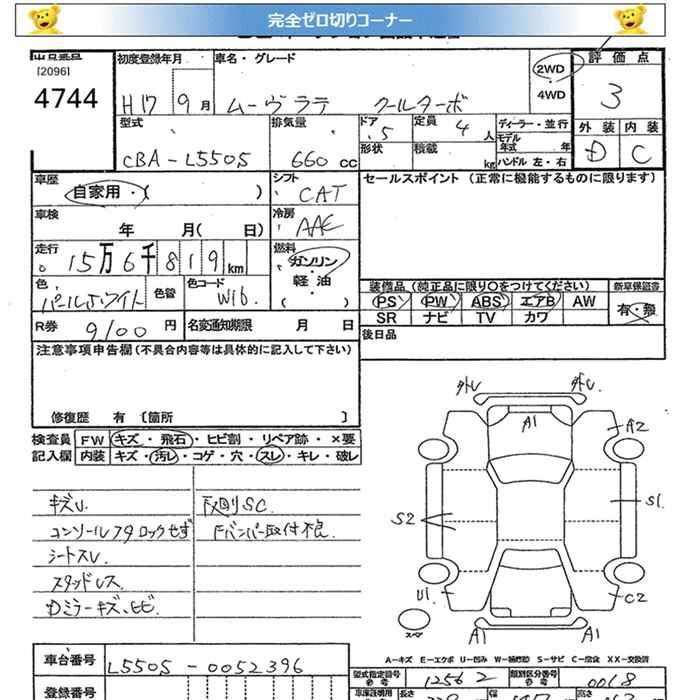 完全ゼロ切りコーナー
出品番号
[2096]
4744
初度登録年月
H17 9月
車名・グレード
ムーヴラテ クールターボ
2WD
4WD
評価点
3
外装 内装
D C
型式
CBA-L550S
排気量
660 cc
ドア
5
形状
定員
4人
積載
kg
ディーラー・並行
モデル年式 年
ハンドル 左・右
車歴
自家用・( )
シフト
CAT
セールスポイント (正常に機能するものに限ります)
車検
年 月( 日)
冷房
AAC
走行
15万6千819km
燃料
ガソリン・軽油・( )
色
パールホワイト
色替
色コード
W16
装備品(純正品に限り〇をつけてください)
新車保証書
PS PW ABS エアB AW
SR ナビ TV カワ
有・無
R券 9100円
名変通知期限 月 日
後日品
注意事項申告欄(不具合内容等は具体的に記入して下さい)
修復歴 有 〔箇所 〕
検査員記入欄
FW キズ・飛石・ヒビ割・リペア跡・×要
内装 キズ・汚レ・コゲ・穴・スレ・キレ・破レ
キズU.
コンソールフタロックせず
シートスレ
スタッドレス
Dミラーキズ、ヒビ
下回りSC.
Fバンパー取付不良.
外U
外U.
A1
A2
S2
S1
U1
C2
スペア
A1
A1
A-キズ E-エクボ U-凹み W-補修跡 S-サビ C-腐食 XX-交換済
車台番号
L550S-0052396
型式指定番号
12562
類別区分番号
0018
登録番号
長さ
幅
高さ